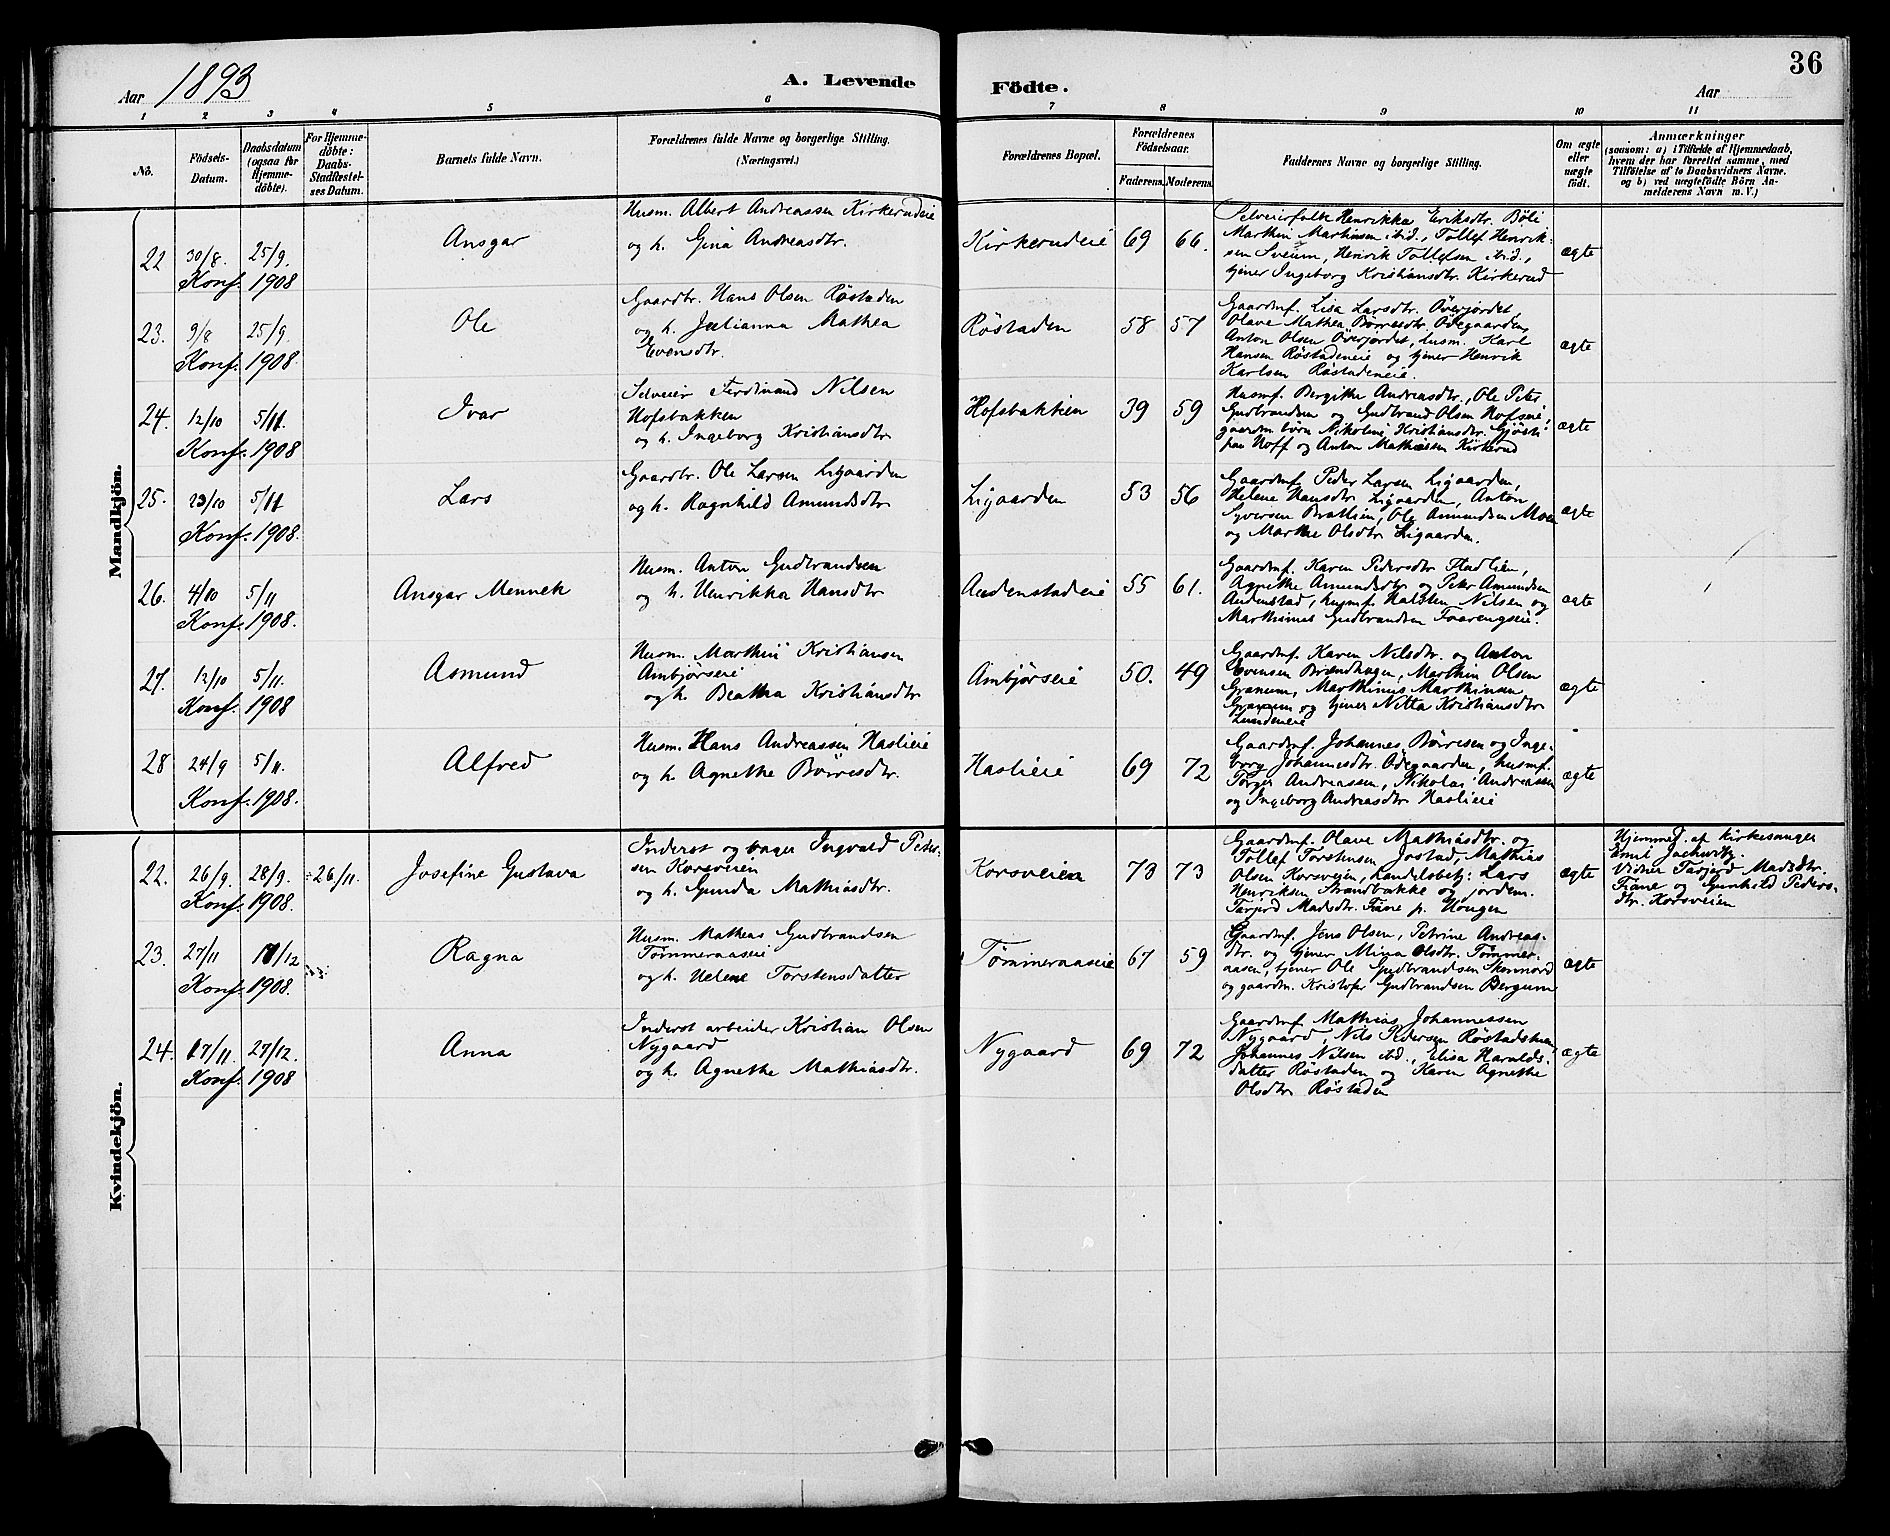 Aar 1893
A. Levende
Födte.
36
Aar
1 2 3 4 5 6 7 8 9 10 11
No.
Födsels-
Datum.
Daabsdatum
(ogsaa for
Hjemme-
döbte).
For Hjemme-
döbte:
Daabs-
Stadfæstel-
ses Datum.
Barnets fulde Navn.
Forældrenes fulde Navne og borgerlige Stilling.
(Næringsvei.)
Forældrenes Bopæl.
Forældrenes
Födselsaar.
Faderens. Moderens.
Faddernes Navne og borgerlige Stilling.
Om ægte
eller
uægte
födt.
Anmærkninger
(saasom: a) i Tilfælde af Hjemmedaab,
hvem der har forrettet samme, med
Tilföielse af to Daabsvidners Navne.
og b) ved uægtefödte Börn An-
melderens Navn m. V.)
Mandkjön.
22 30/8. 25/9.
Konf. 1908
Ansgar
Husm. Albert Andreassen Kirkerudeie
og h. Gina Andreasdtr.
Kirkerudeie 69 66.
Selveierfolk Henrikka Eriksdtr. Böli
Marthin Martinsen ibid., Tollef Henrik-
sen Sveum, Henrik Tollefsen ibid.,
tjener Ingeborg Kristiansdtr. Kirkerud
ægte
23. 9/8 25/9
Konf. 1908.
Ole
Gaardbr. Hans Olsen Røstaden
og h. Julianna Mathea
Evensdtr.
Røstaden 58 57
Gaardmf. Lisa Larsdtr. Överjordet
Olave Mathea Börresdtr. Ödegaarden,
Anton Olsen Överjordet, husm. Karl
Hansen Røstadeneie og tjener Henrik
Karlsen Røstadeneie.
ægte
24. 12/10 5/11.
Konf. 1908
Ivar
Selveier Ferdinand Nilsen
Hofsbakken
og h. Ingeborg Kristiansdtr
Hofsbakken 39 59
Husmf. Bergithe Andreasdtr., Ole Peter
Gudbrandsen og Gudbrand Olsen Hofseie,
gaardm. börn Nikoline Kristiansdtr. Gjöst-
Hoff og Anton Mathiesen Kirkerud
ægte
25. 23/10 5/11
Konf. 1908.
Lars
Gaardbr. Ole Larsen Ligaarden
og h. Ragnhild Amundsdtr
Ligaarden 53 56
Gaardmf. Peder Larsen Ligaarden,
Helene Hansdtr. Ligaarden, Anton
Syversen Brattlien, Ole Amundsen Moen
og Marthe Olsdtr. Ligaarden.
ægte
26. 4/10 5/11
Konf. 1908.
Ansgar Mennek
Husm. Anton Gudbrandsen
og h. Henrikka Hansdtr
Audenstadeie 55 61.
Gaardmf. Karen Pedersdtr Hadlien,
Agnethe Amundsdtr og Peter Amundsen
Audenstad, husmf. Halsten Nilsen og
Marthinus Gudbrandsen Faarengseie.
ægte
27. 12/10 5/11.
Konf. 1908
Asmund
Husm. Marthin Kristiansen
Ambjörseie
og h. Beatha Kristiansdtr
Ambjörseie 50. 49
Gaardmf. Karen Nilsdtr. og Anton
Evensen Brændhagen, Marthin Olsen
Granum, Marthinus Marthinsen
Granum og tjener Netta Kristiansdtr
Lundeneie
ægte
28 24/9 5/11.
Konf. 1908.
Alfred
Husm. Hans Andreassen Haslieie
og h. Agnethe Börresdtr.
Haslieie 69 72
Gaardmf. Johannes Börresen og Inge-
borg Johannesdtr. Ödegaarden, husmf.
Torger Andreassen, Nikolai Andreassen
og Ingeborg Andreasdtr Haslieie
ægte
Kvindekjön.
22. 26/9. 28/9. 26/11.
Konf. 1908.
Josefine Gustava
Inderst og bager Ingvald Peder-
sen Korsveien
og h. Gunda Mathiasdtr.
Korsveien 73 73
Gaardmf. Olave Mathiasdtr. og
Tollef Torstensen Jostad, Mathias
Olsen Korsveien, handelsbetj. Lars
Henriksen Strandbakke og jordm.
Tarjerd Madsdtr. Fiane p. Hougen
ægte
Hjemmed. af kirkesanger
Emil
Vidner Tarjerd Madsdtr.
Fiane og Gunhild Peders-
dtr. Korsveien
23. 27/11 17/12
Konf. 1908.
Ragna
Husm. Matheas Gudbrandsen
Tömmeraaseie
og h. Helene Torstensdatter
Tömmeraaseie 67 59
Gaardmf. Jens Olsen, Petrine Andreas-
dtr. og tjener Mina Olsdtr. Tömmer-
aasen, tjener Ole Gudbrandsen Skonnord
og gaardm. Kristofer Gudbrandsen Bergum
ægte
24. 17/11. 27/12.
Konf. 1908
Anna
Inderst arbeider Kristian Olsen
Nygaard
og h. Agnethe Mathiasdtr.
Nygaard 69 72
Gaardmf. Mathias Johannessen
Nygaard, Nils Pedersen
Johannes Nilsen ibid., Elisa Haralds-
datter Røstaden og Karen Agnethe
Olsdtr Røstaden
ægte